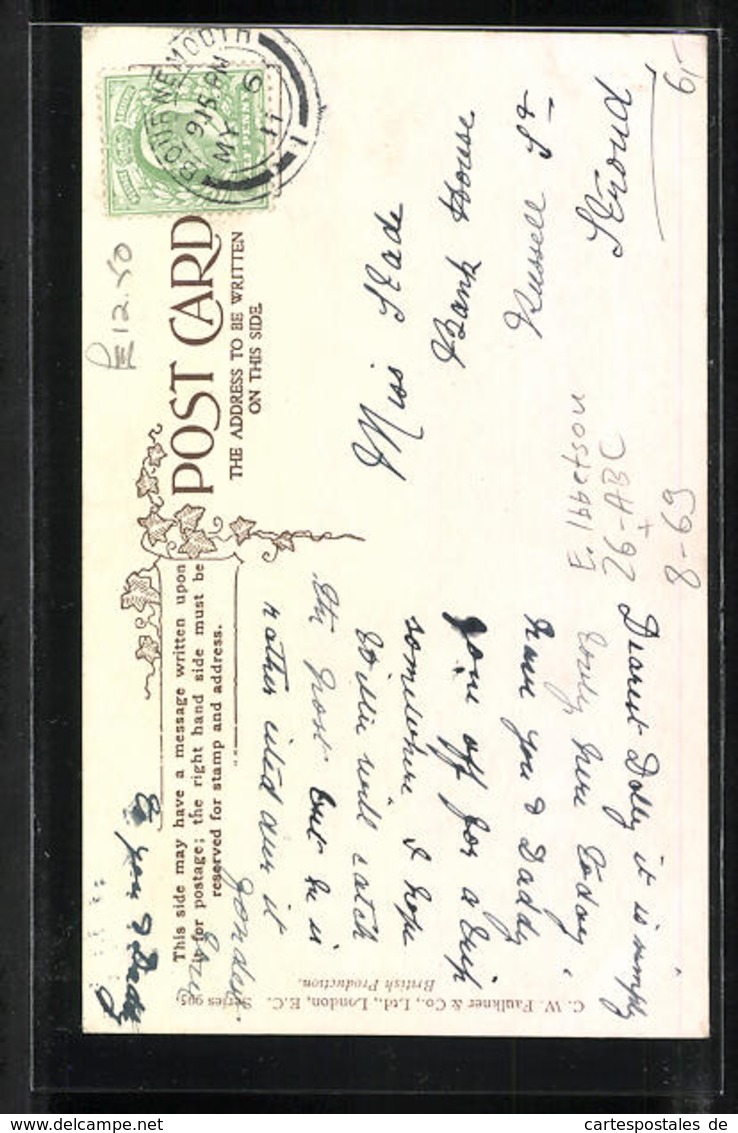 BOURNEMOUTH
9.15 PM
MY 6
11
POST CARD
THE ADDRESS TO BE WRITTEN
ON THIS SIDE.
This side may have a message written upon
it for postage; the right hand side must be
reserved for stamp and address.
12.50
6,-
Miss Slade
Bank House
Russell St
Stroud
E. Ibbetson
26-ABC
+
8-69
Dearest Dolly it is simply
lovely here today
have you & Daddy
gone off for a trip
somewhere I hope
Willie will catch
the post but he is
rather
it
& you & Daddy
C. W. Faulkner & Co., Ltd., London, E.C. Series 965
British Production.
cartespostales de